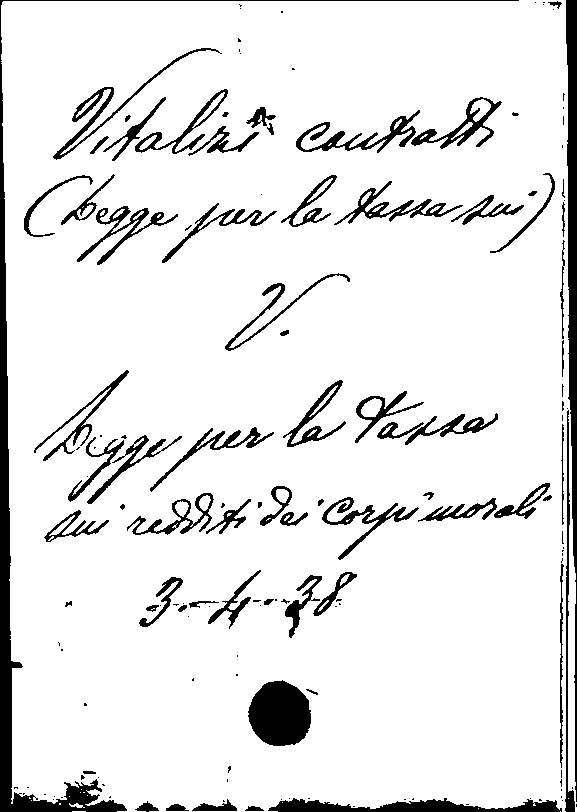 Vitalizi contratti
(Legge per la tassa sui)
V.
Legge per la tassa
sui redditi dei corpi morali
3-4-38